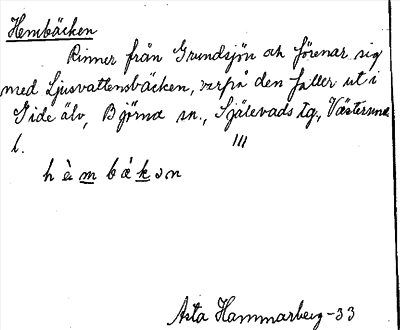 Hembäcken
Rinner från Grundsjön och förenar sig
med Ljusvattensbäcken, varpå den faller ut i
Gide älv, Björna sn., Själevads tg., Västernorrl.
l. III
h è m b á k ə n
Asta Hammarberg -33